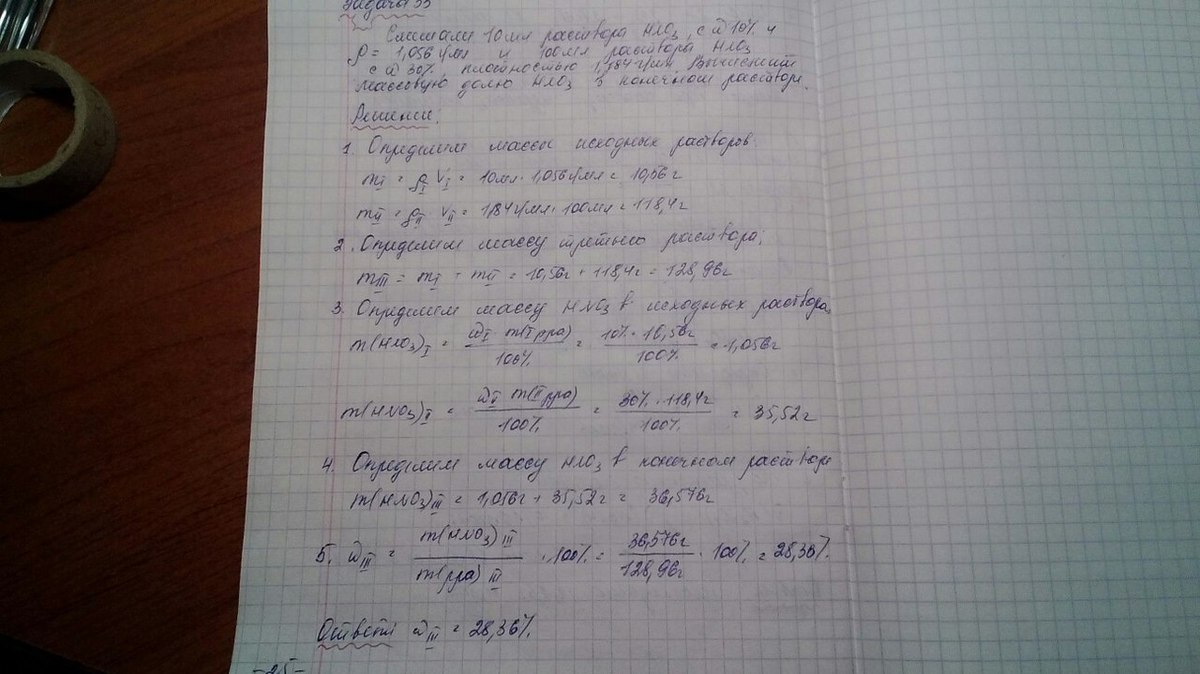 Задача 33
Смешали 10мл раствора HNO3 с ω 10% и
ρ = 1,056 г/мл и 100мл раствора HNO3
с ω 30% плотностью 1,184г/мл. Вычислить
массовую долю HNO3 в конечном растворе.
Решение:
1. Определим массы исходных растворов.
mI = ρI VI = 10мл · 1,056г/мл = 10,56 г
mII = ρII VII = 1,184г/мл · 100мл = 118,4г
2. Определим массу третьего раствора;
mIII = mI + mII = 10,56г + 118,4г = 128,96г
3. Определим массу HNO3 в исходных раствора
m(HNO3)I = ωI m(I рра) / 100% = 10% · 10,56г / 100% = 1,056г
m(HNO3)II = ωII m(II рра) / 100% = 30% · 118,4г / 100% = 35,52 г
4. Определим массу HNO3 в конечном растворе
m(HNO3)III = 1,056г + 35,52г = 36,576г
5. ωIII = m(HNO3)III / m(рра)III · 100% = 36,576г / 128,96г · 100% = 28,36%.
Ответ: ωIII = 28,36%.
-25-